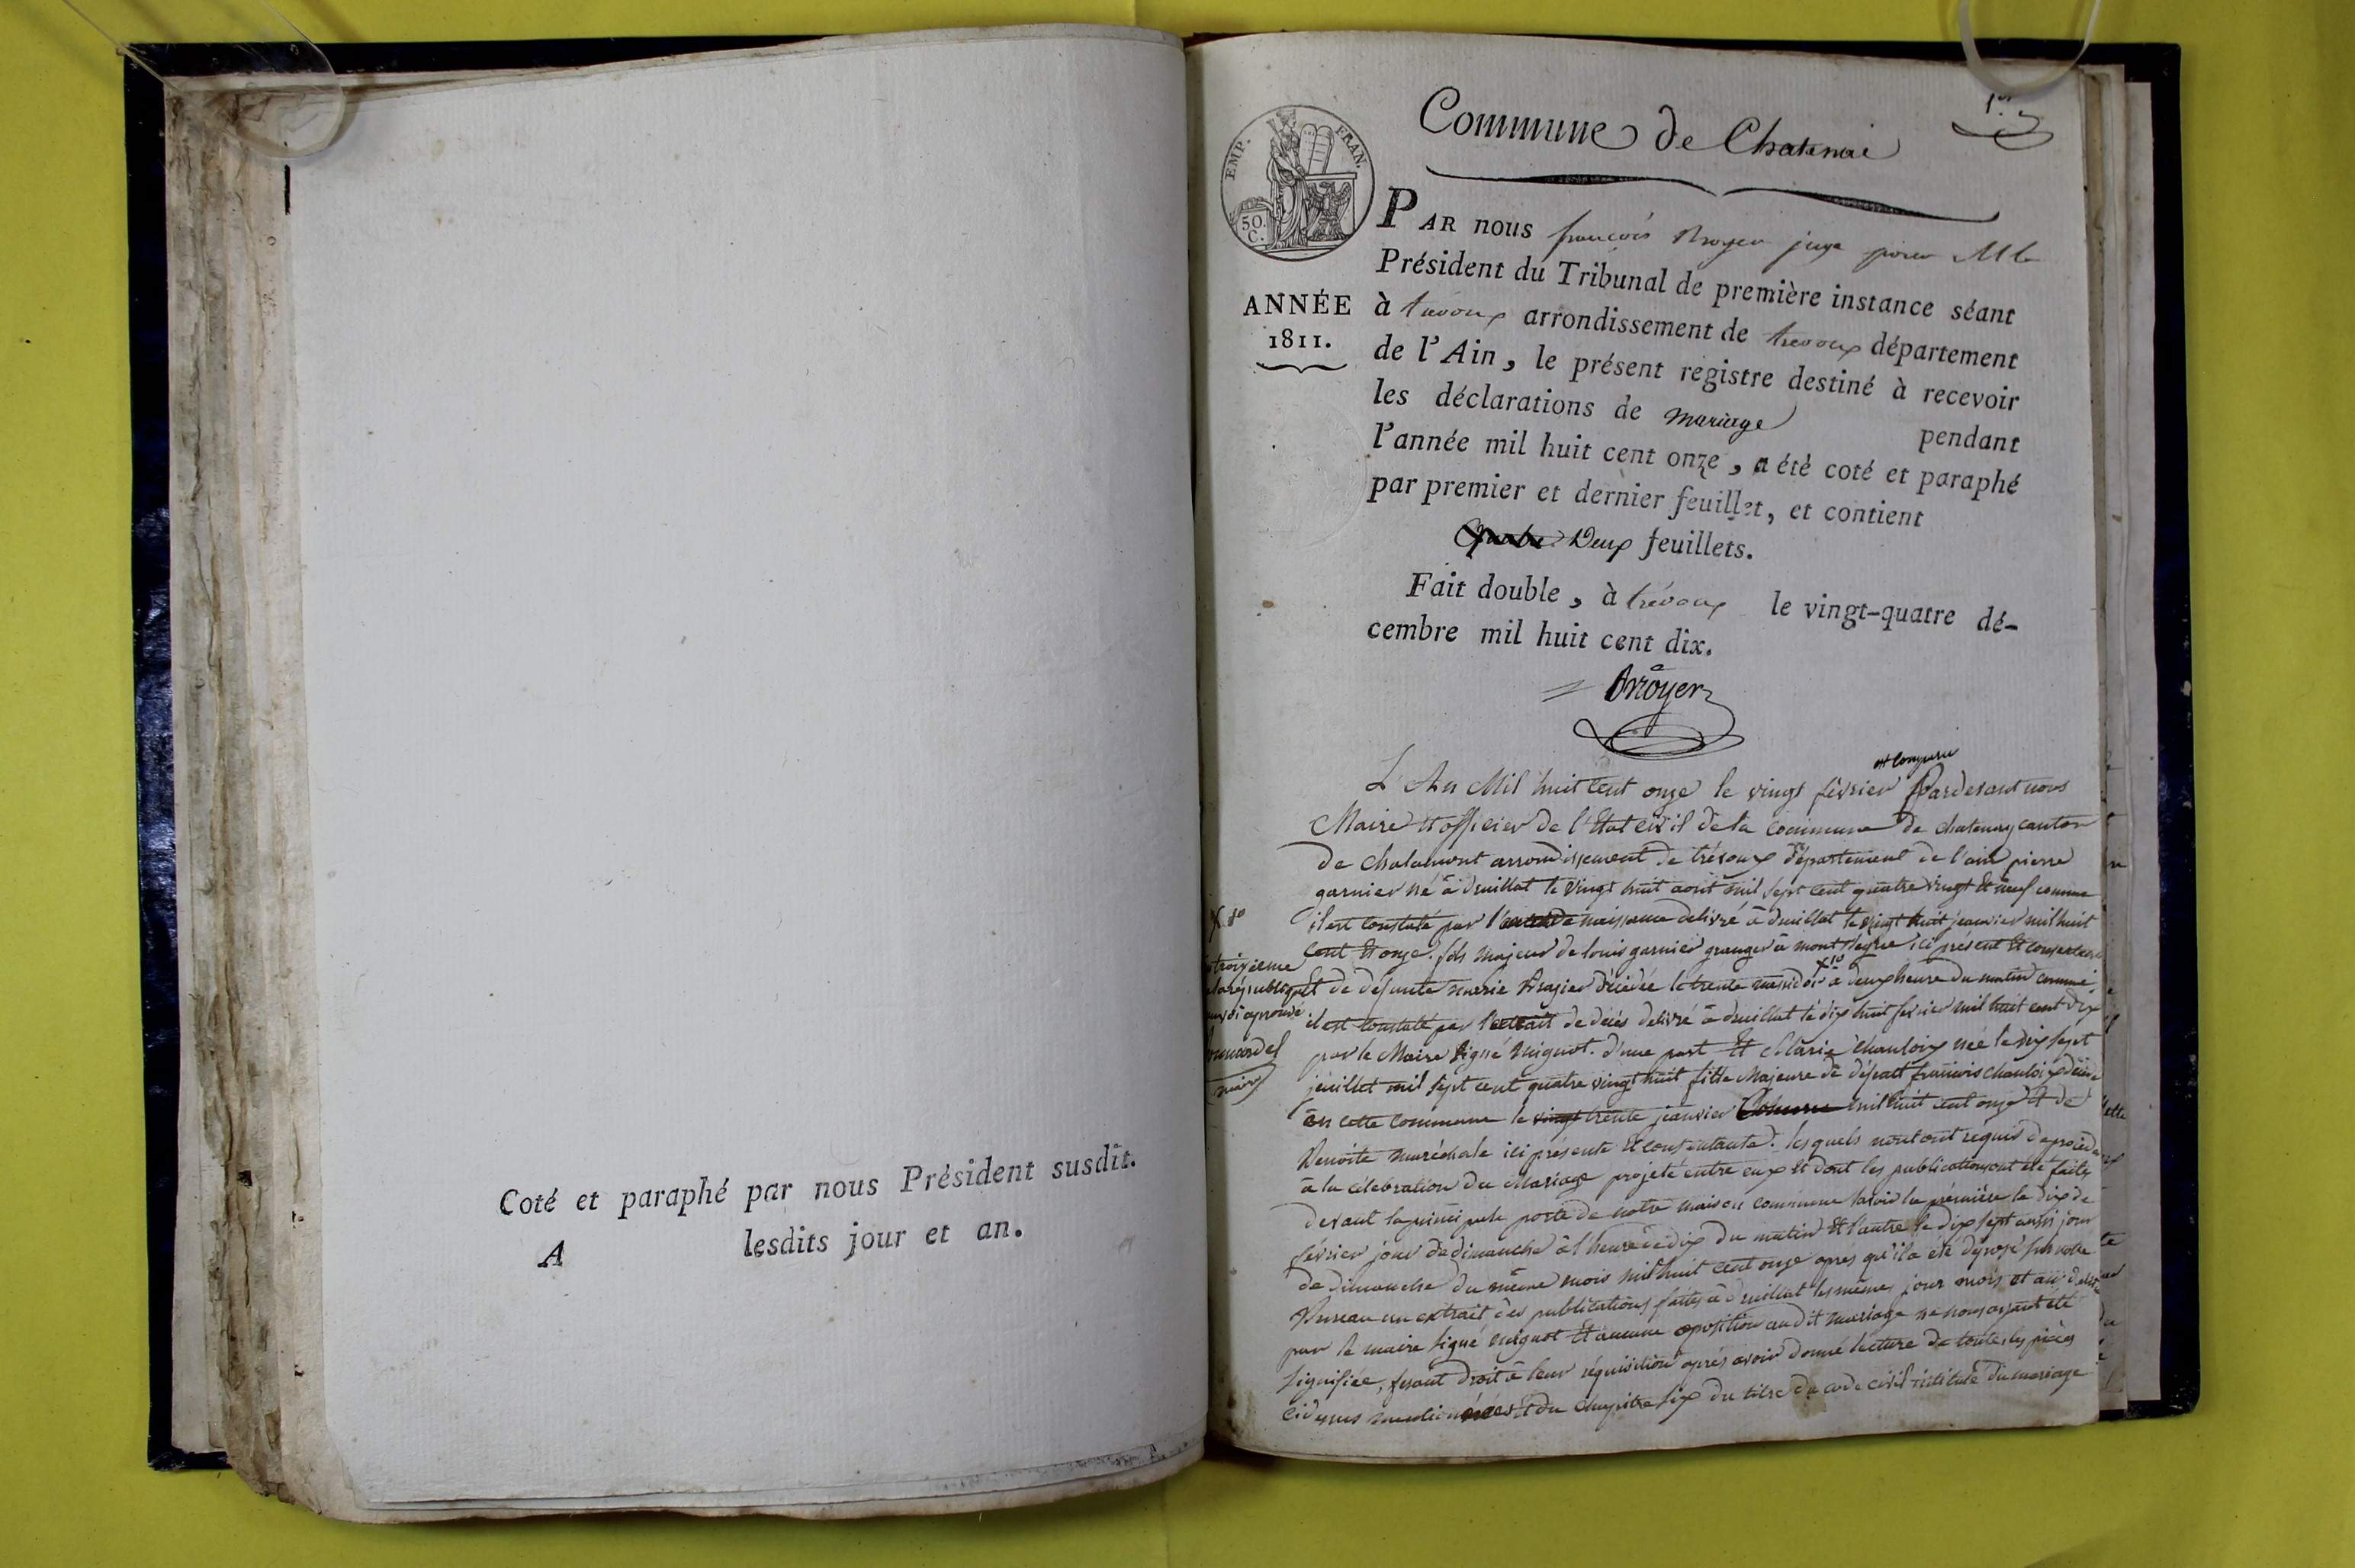 Coté et paraphé par nous Président susdit.
A lesdits jour et an.
1er
Commune de Chatenai
EMP. FRAN.
50. C.
ANNÉE
1811.
PAR nous françois Broyer juge pour Mr le
Président du Tribunal de première instance séant
à trévoux arrondissement de trevoux département
de l'Ain, le présent registre destiné à recevoir
les déclarations de mariage pendant
l'année mil huit cent onze, a été coté et paraphé
par premier et dernier feuillet, et contient
Deux feuillets.
Fait double, à trévoux le vingt-quatre dé-
cembre mil huit cent dix.
Broyer
L'An Mil huit cent onze le vingt février est comparu Pardevant nous
Maire et officier de l'Etat civil de la commune de chatenay canton
de chalamont arrondissement de trévoux département de l'ain pierre
garnier né à druillat le vingt huit août mil sept cent quatre vingt et neuf comme
il est constaté par l' de naissance delivré à druillat le vingt huit janvier mil huit
cent et onze. fils majeur de louis garnier granger à ici présent et consentant
et de défunte marie décédée le trente messidor à deux heure du matin comme
il est constaté par l'extrait de décés delivré à druillat le dix huit fevrier mil huit cent dix
par le Maire signé mignot. d'une part Et Marie née le dix sept
jeuillet mil sept cent quatre vingt huit fille Majeure de défunt françois
en cette commune le vingt trente janvier mil huit cent onze et de
Benoite maréchale ici présente et consentante. les quels nous ont réquis de proced
à la célébration du Mariage projeté entre eux et dont les publications ont été faites
devant la principale porte de notre maison commune savoir la première le dix de
février jour de dimanche à l'heure de dix du matin et l'autre le dix sept aussi jour
de dimanche du même mois mil huit cent onze aprés qu'il a été déposé sur notre
Bureau un extrait des publications faites à druillat les même jour mois et an
par le maire signé mignot et aucune oposition au dit mariage ne nous ayant été
signifiée, fesant droit à leur réquisition aprés avoir donné lecture de toutes les pièces
cidessus mentionnées et du chapitre six du titre du code civil intitulé du mariage
X 1o
troizieme
la république
aprouvé
maire